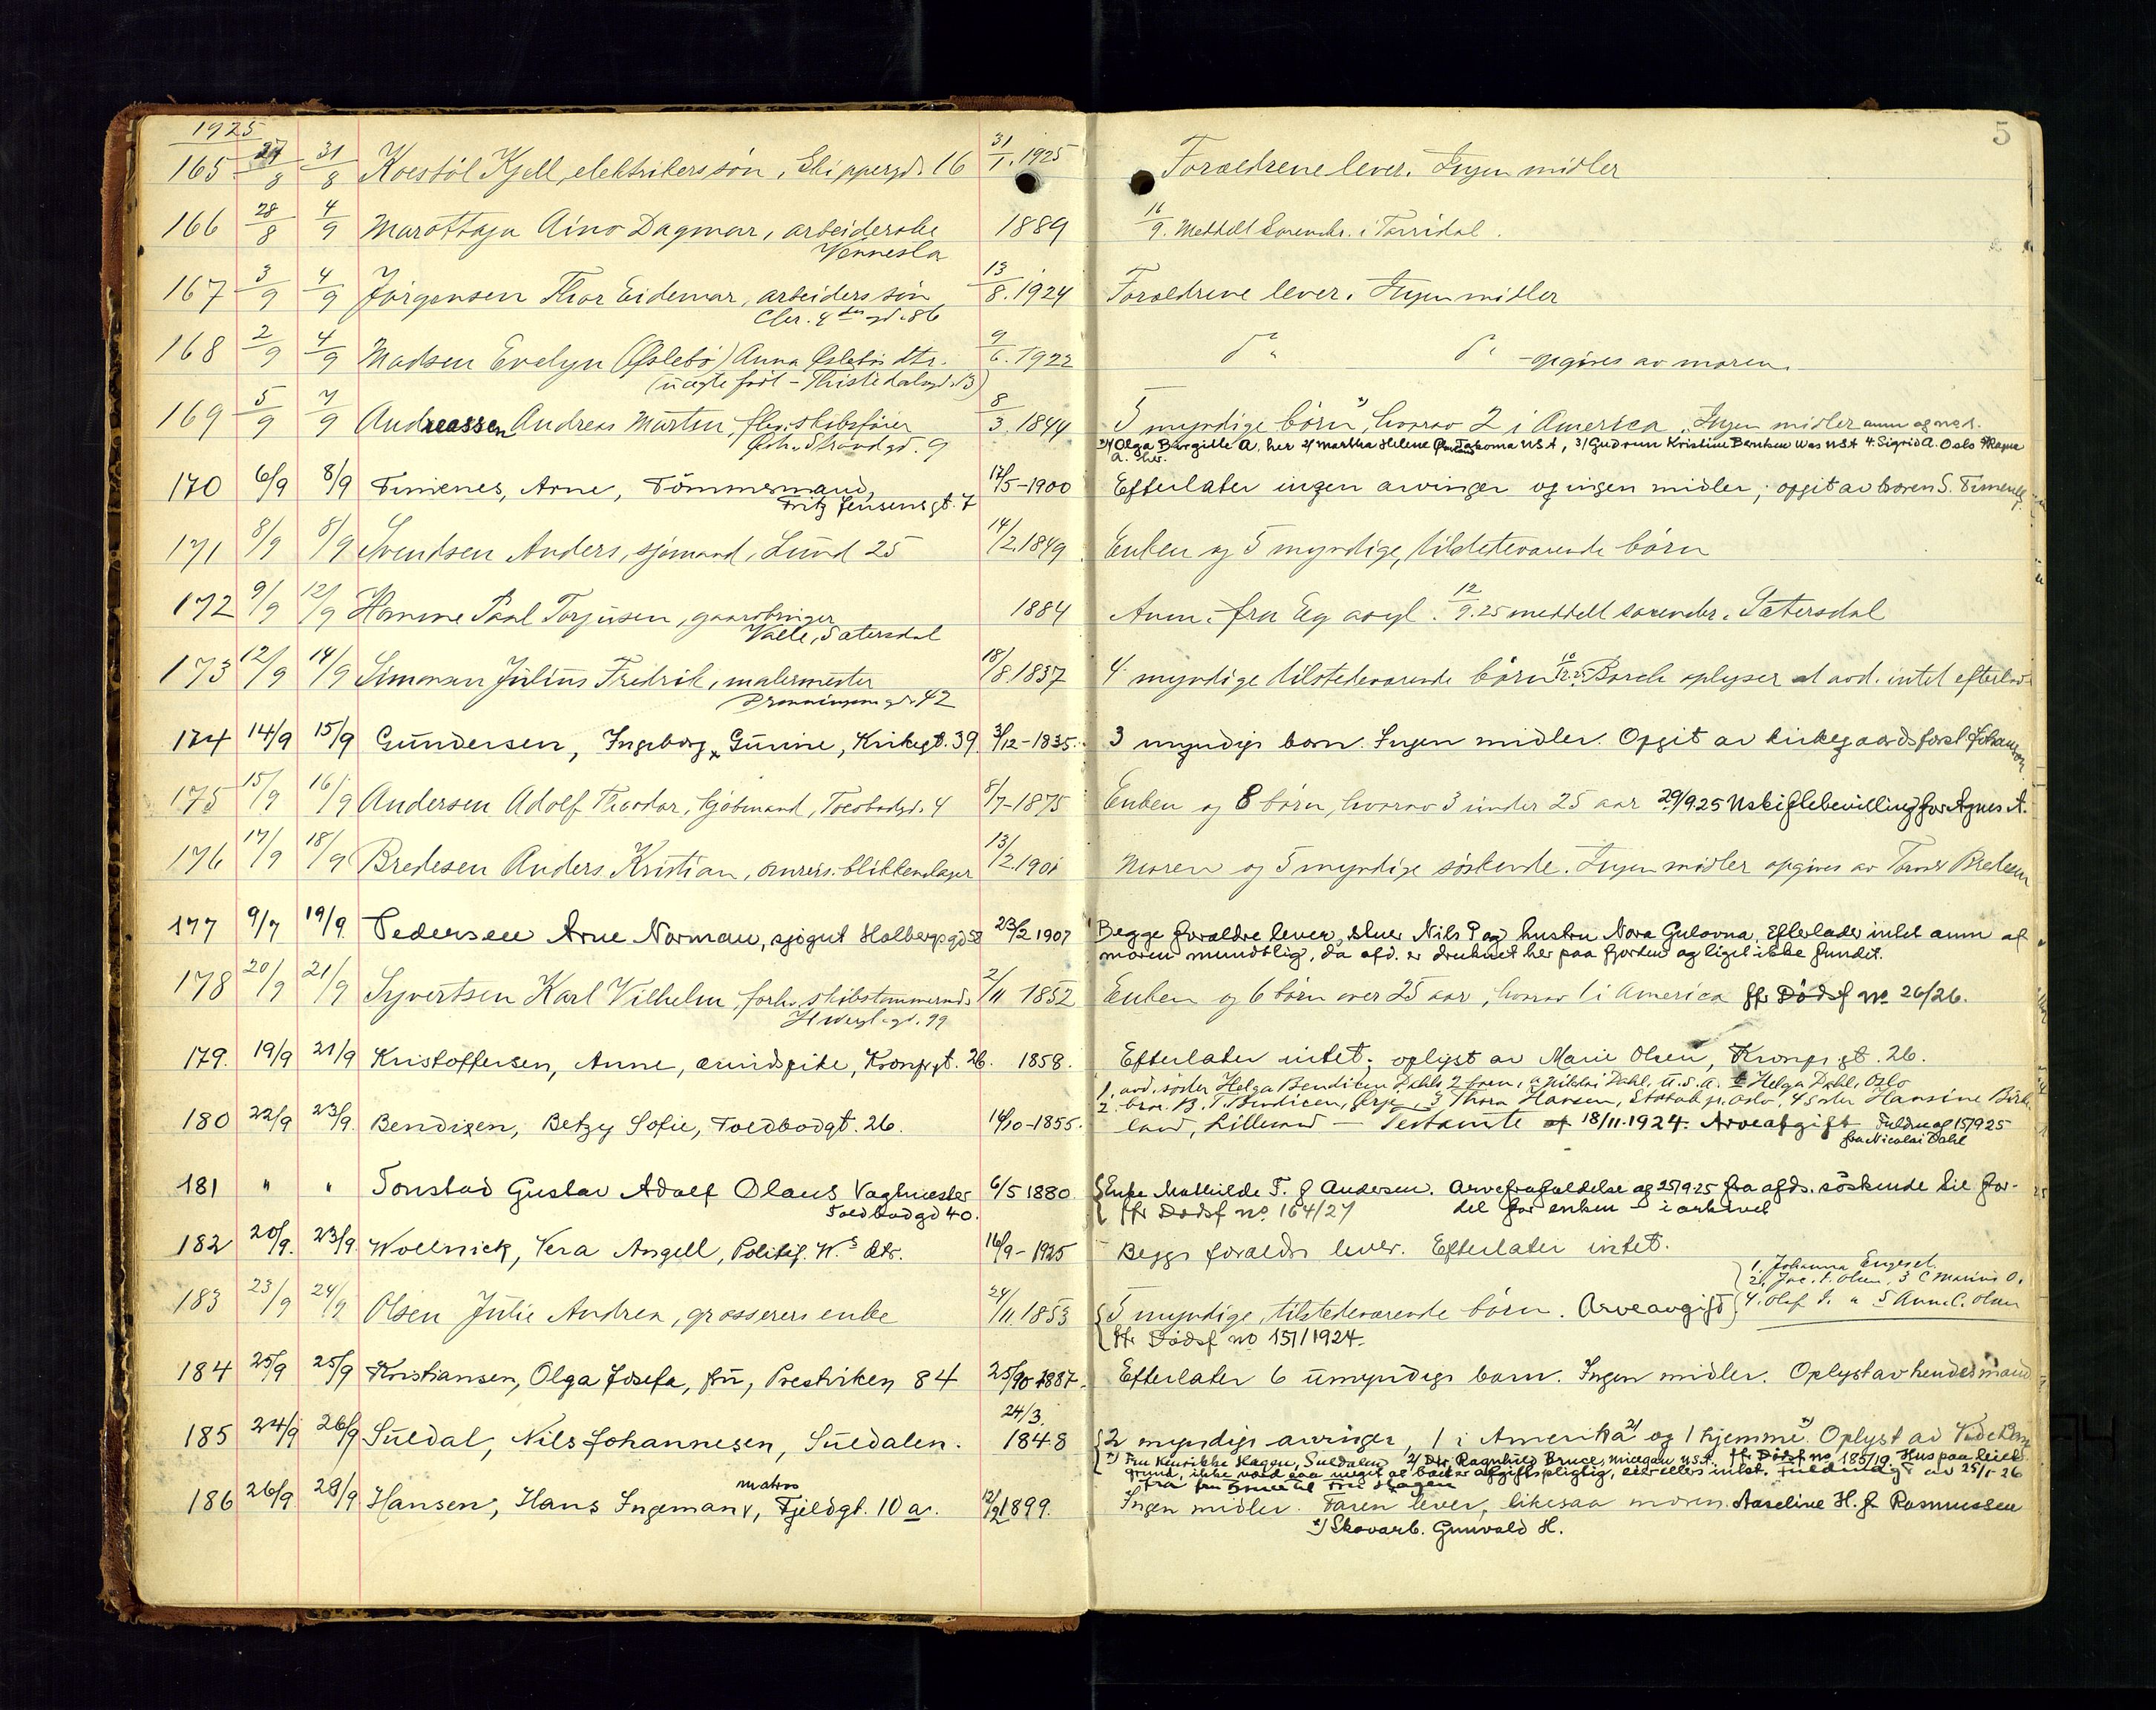 1925
5
165 27/8 31/8 Koestöl Kjell, elektrikers sön, Skippergd. 16 31/1.1925 Forældrene lever. Ingen midler
166 28/8 4/9 Marottaja Aino Dagmar, arbeiderske 1889 16/9. Meddelt Sorenskr. i Torridal.
Vennesla
167 3/9 4/9 Jörgensen Thor Eidemar, arbeiders sön, 13/8.1924 Forældrene lever. Ingen midler
Chr. 4 des gd. 86
168 2/9 4/9 Madsen Evelyn (Öslebö) Anna Öslebös dtr. 9/6.1922 do do - opgives av moren.
(uægte født - Thistedalsgd. 13)
169 5/9 7/9 Andreassen Andreas Martin, skibsfører 8/3.1844 5 myndige börn, hvorav 2 i America. Ingen midler
Östr. Strandgd. 9 1) Olga Bergitte A. her 2) Martha Helene Takoma USA, 3) Gudrun Kristine Berntsen Was USA 4. Sigrid A. Oslo
A. her.
170 6/9 8/9 Timenes, Arne, Tömmermand, 17/5-1900 Efterlater ingen arvinger og ingen midler; opgit av broren S. Timenes
Fritz Jensensgt. 7
171 8/9 8/9 Svendsen Anders, sjömand, Lund 25 14/2.1849 Enken og 5 myndige, tilstedeværende börn
172 9/9 12/9 Homme Paal Torjusen, gaardbruger 1884 Anm. fra Eg asyl. 12/9.25 meddelt sorenskr. Sætersdal
Valle, Sætersdal
173 12/9 14/9 Simonsen Julius Fredrik, malermester 18/8.1837 4 myndige tilstedeværende börn Borch oplyser at avd. intet efterlod
Dronningensgd. 42
174 14/9 15/9 Gundersen, Ingeborg Gurine, Kirkegt. 39 3/12-1835. 3 myndige barn. Ingen midler. Opgit av kirkegaardsforst. Johansson
175 15/9 16/9 Andersen Adolf Theodor, kjöbmand, Toldbodgd. 4 8/7-1875 Enken og 8 börn, hvorav 3 under 25 aar 29/9 25 Uskiftebevilling for Agnes A.
176 17/9 18/9 Bredesen Anders Kristian, blikkenslager 13/2.1901 Moren og 5 myndige söskende. Ingen midler opgives av Bredesen
177 9/7 19/9. Pedersen Arne Norman, sjøgut Holbergsgd 58 23/2 1907 Begge forældre lever, Nils P og hustru Nora Gulovna, Efterlader intet anm af
moren mundtlig, da afd. er druknet her paa fjorden og liget ikke fundet.
178 20/9 21/9 Syvertsen Karl Vilhelm, forhv. skibstømmermd. 2/11 1852 Enken og 6 börn over 25 aar, hvorav 1 i America jfr Dödsf no 26/26.
H Wergl. gd. 99
179. 19/9 21/9 Kristoffersen, Anne, Kronprgt. 26. 1858. Efterlater intet; oplyst av Marie Olsen, Kronprgt. 26.
1. avd. søster Helga Bendixen Dahls 2 barn, a Nikolai Dahl, U.S.A. b Helga Dahl, Oslo
180 22/9 23/9. Bendixen, Betzy Sofie, Toldbodgt. 26. 14/10-1855. 2 bror B. T. Bendixen, 3 Thora Hansen, Oslo, 4 Søster Hansine
land, Lillesand - Testamente af 18/11.1924. Arveafgift Fuldm af 15/9 25
fra Nicolai Dahl
181 " " Tonstad Gustav Adolf Olaus Vagtmester 6/5 1880 Enke Mathilde T. f Andersen. Arvefrafaldelse af 25/9 25 fra afds. söskende til for-
Toldbodgd 40. jfr Dødsf no 164/27 del for enken - i arkivet
182 20/9. 23/9. Wollnick, Vera Angell, Politif. W.s dtr. 16/9-1925 Begge forældre lever. Efterlater intet.
1. Johanna Engesel
2. Jac. t. Olsen, 3 C Marius O.
183 23/9 24/9 Olsen Julie Andrea, grosserers enke 24/11.1853 5 myndige, tilstedeværende börn. Arveavgift 4. Olof J. " 5 Anna C. Olsen
jfr Dødsf no 151/1924.
184 25/9 25/9 Kristiansen, Olga Josefa, fru, Prestviken 84 Efterlater 6 umyndige barn. Ingen midler. Oplyst av hendes mand
185 24/9 26/9 Suldal, Nils Johannesen, Suldalen. 24/3. 1848 2 myndige arvinger, 1 i Amerika 2) og 1 hjemme 1). Oplyst av
1) Fru Henrikke Hagen, Suldalen 2) Dtr. Ragnhild Bruce, Micegan USA. jfr Dödsf no 185/19. Hus paa leiet
grund, ikke værd saa meget at boet er afgiftspligtig, eier ellers intet. Fuldmagt av 25/1-26
fra fru Bruce til Fru Hagen
matros
186 26/9. 28/9 Hansen, Hans Ingemann, Fjeldgt. 10 a. 12/2 1899. Ingen midler. Faren lever, likesaa moren. Aaseline H. f. Rasmussen
x) Skovarb. Gunvald H.